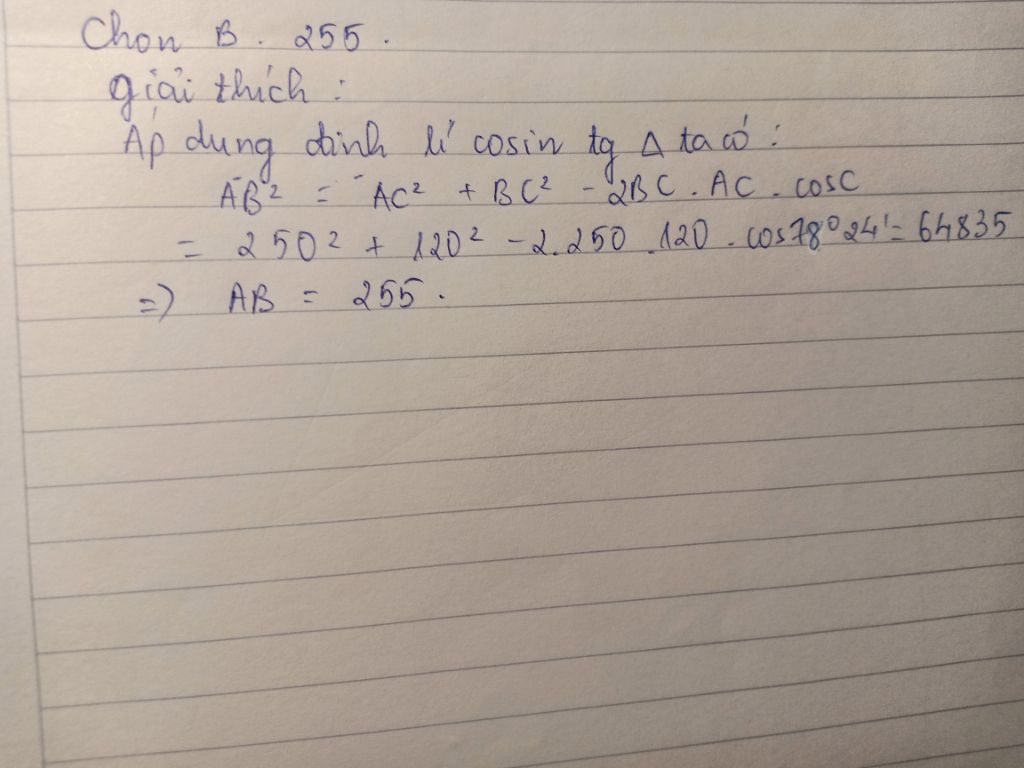 Chọn B. 255.
Giải thích :
Áp dụng định lí cosin tg Δ ta có :
AB² = AC² + BC² - 2BC . AC . cosC
= 250² + 120² - 2.250.120 . cos78°24' = 64835
=> AB = 255.